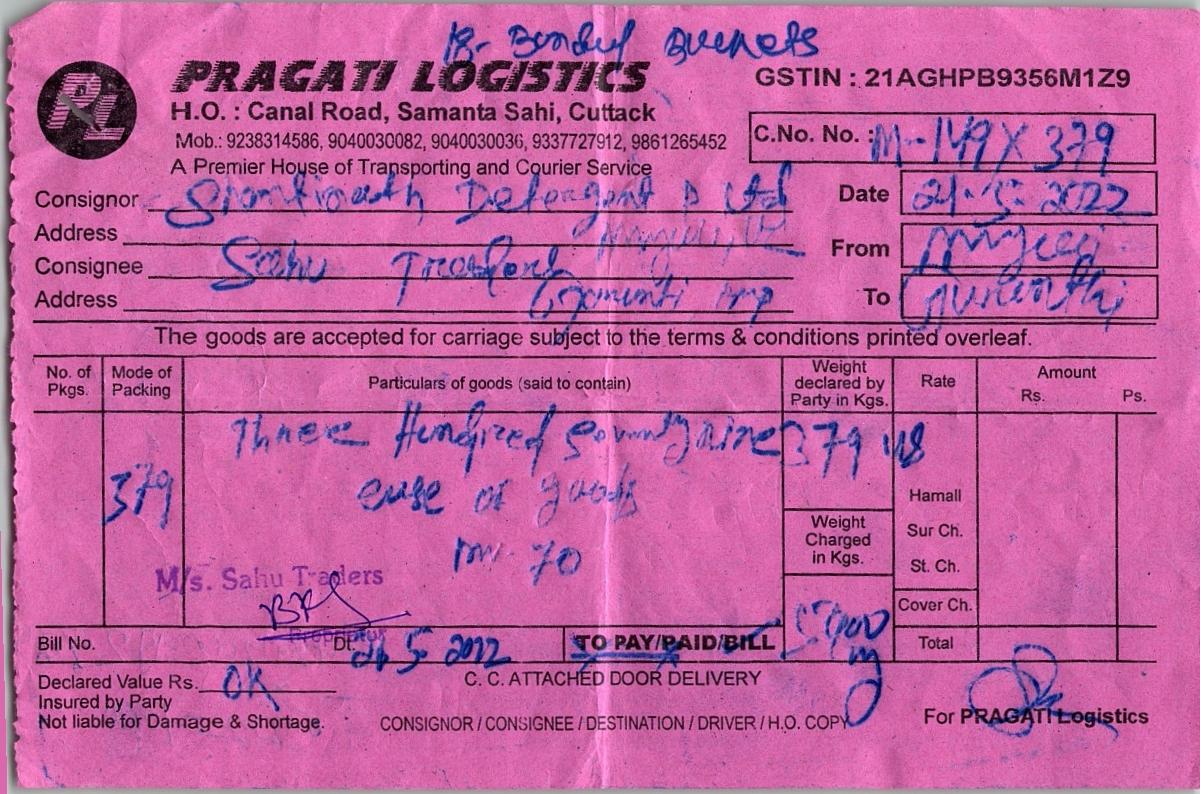 18- Bondul Buckets
PRAGATI LOGISTICS
GSTIN : 21AGHPB9356M1Z9
H.O. : Canal Road, Samanta Sahi, Cuttack
Mob.: 9238314586, 9040030082, 9040030036, 9337727912, 9861265452
C.No. No. : M-149X379
A Premier House of Transporting and Courier Service
Consignor Shantinath Detergent P Ltd
Date 21-5-2022
Address
From
Consignee Sahu
Address
To
The goods are accepted for carriage subject to the terms & conditions printed overleaf.
No. of Pkgs. Mode of Packing Particulars of goods (said to contain) Weight declared by Party in Kgs. Rate Amount Rs. Ps.
Three Hundred 379
379 of goods
Hamall
Weight Charged in Kgs.
Sur Ch.
70
St. Ch.
M/s. Sahu Traders
Cover Ch.
Proprietor
Bill No. Dt. 21 5 2022 TO PAY/PAID/BILL Total
Declared Value Rs. OK C. C. ATTACHED DOOR DELIVERY
Insured by Party
Not liable for Damage & Shortage. CONSIGNOR / CONSIGNEE / DESTINATION / DRIVER / H.O. COPY For PRAGATI Logistics